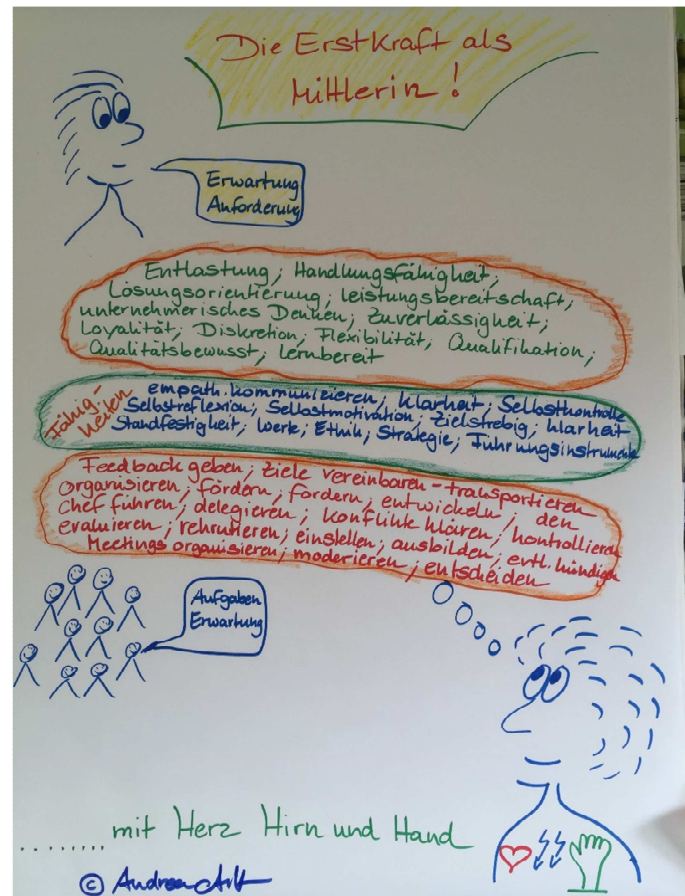 Die Erstkraft als
Mittlerin!
Erwartung
Anforderung
Entlastung; Handlungsfähigkeit;
Lösungsorientierung; Leistungsbereitschaft;
unternehmerisches Denken; Zuverlässigkeit;
Loyalität; Diskretion; Flexibilität; Qualifikation;
Qualitätsbewusst; lernbereit
Fähig-
keiten
empath. kommunizieren; Klarheit; Selbstkontrolle
Selbstreflexion; Selbstmotivation; Zielstrebig; Klarheit
Standfestigkeit; Werte; Ethik; Strategie; Führungsinstrumente
Feedback geben; Ziele vereinbaren - transportieren
organisieren; fördern; fordern; entwickeln; den
Chef führen; delegieren; Konflikt klären; kontrollieren
evaluieren; rekrutieren; einstellen; ausbilden; evtl. kündigen
Meetings organisieren; moderieren; entscheiden
Aufgaben
Erwartung
........ mit Herz Hirn und Hand
© Andrea